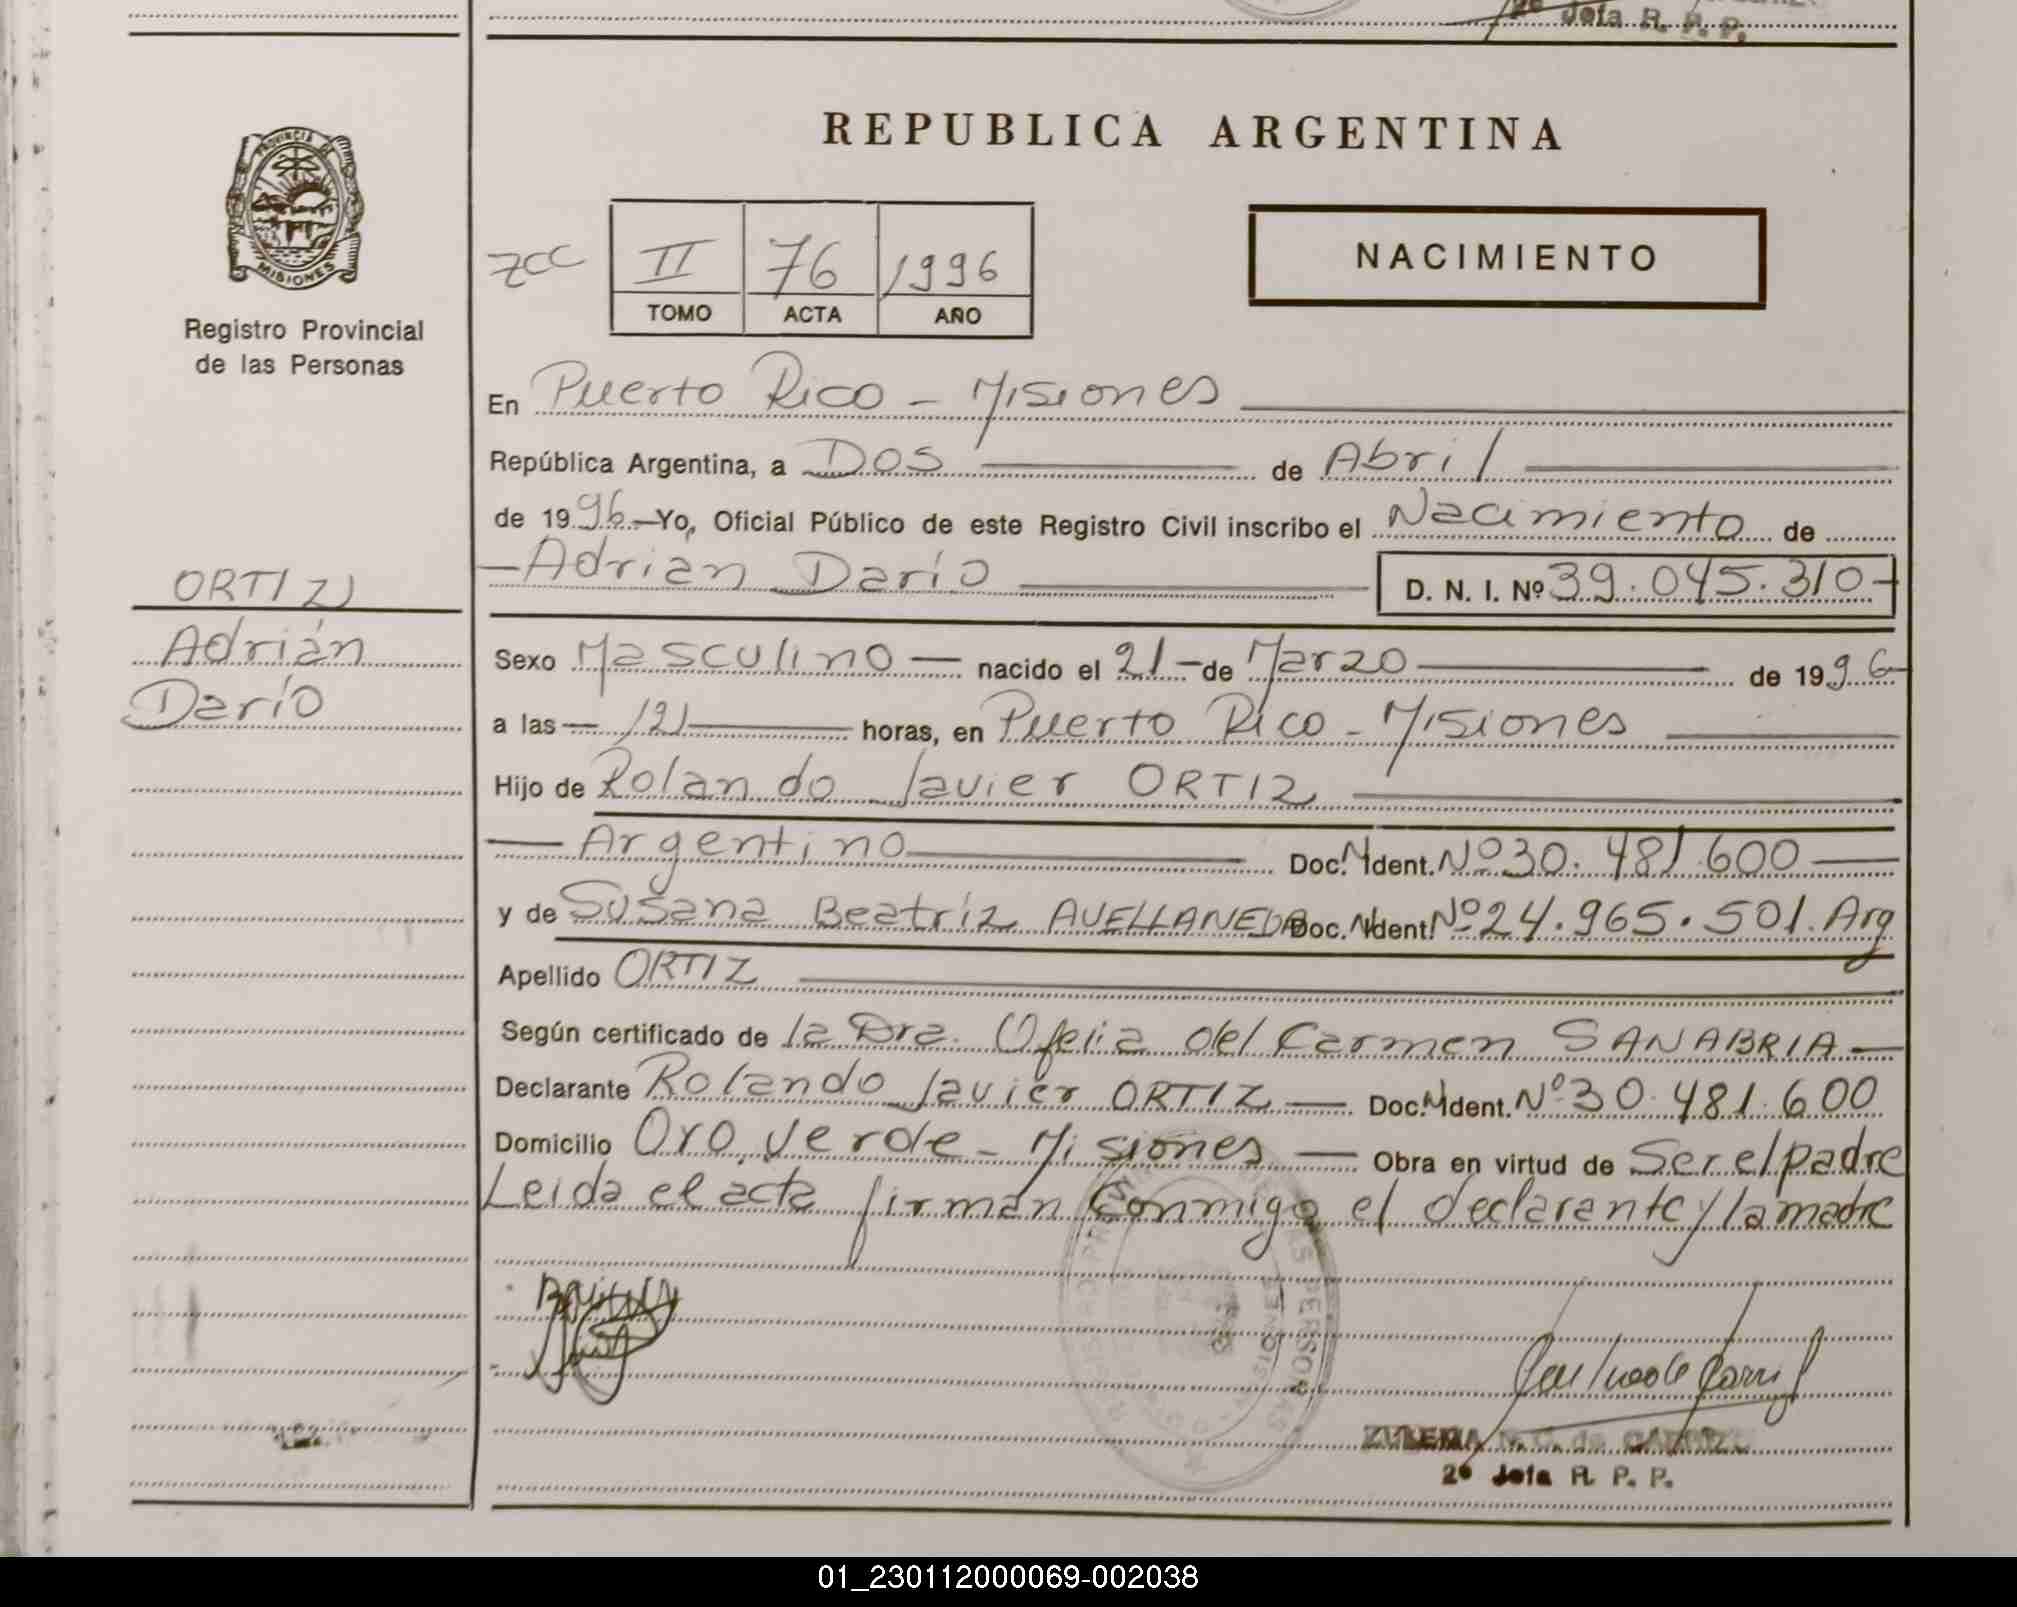 2º Jefa R. P. P.
REPUBLICA ARGENTINA
PROVINCIA DE
MISIONES
Registro Provincial
de las Personas
zcc II 76 1996
TOMO ACTA AÑO
NACIMIENTO
En Puerto Rico - Misiones
República Argentina, a Dos de Abril
de 1996.-Yo, Oficial Público de este Registro Civil inscribo el Nacimiento de
-Adrián Darío D. N. I. Nº 39.045.310-
ORTIZ
Adrián
Darío
Sexo Masculino - nacido el 21 - de Marzo de 1996
a las - 12 horas, en Puerto Rico - Misiones
Hijo de Rolando Javier ORTIZ
- Argentino Doc. N Ident. Nº 30.481.600
y de Susana Beatríz AVELLANEDA Doc. N Ident. Nº 24.965.501. Arg
Apellido ORTIZ
Según certificado de la Dra. Ofelia del Carmen SANABRIA -
Declarante Rolando Javier ORTIZ - Doc. N Ident. Nº 30.481.600
Domicilio Oro Verde - Misiones - Obra en virtud de Ser el padre
Leida el acta firman conmigo el declarante y la madre
ZULEMA de
2º Jefa R. P. P.
01_230112000069-002038